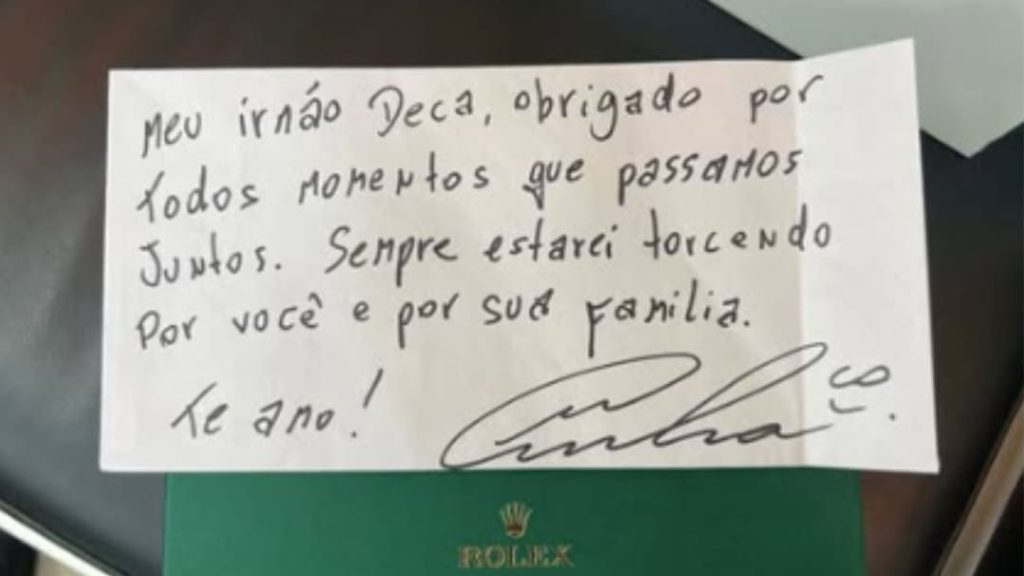 Meu irnão Deca, obrigado por
todos momentos que passamos
Juntos. Sempre estarei torcendo
Por você e por sua Familia.
Te amo!
ROLEX